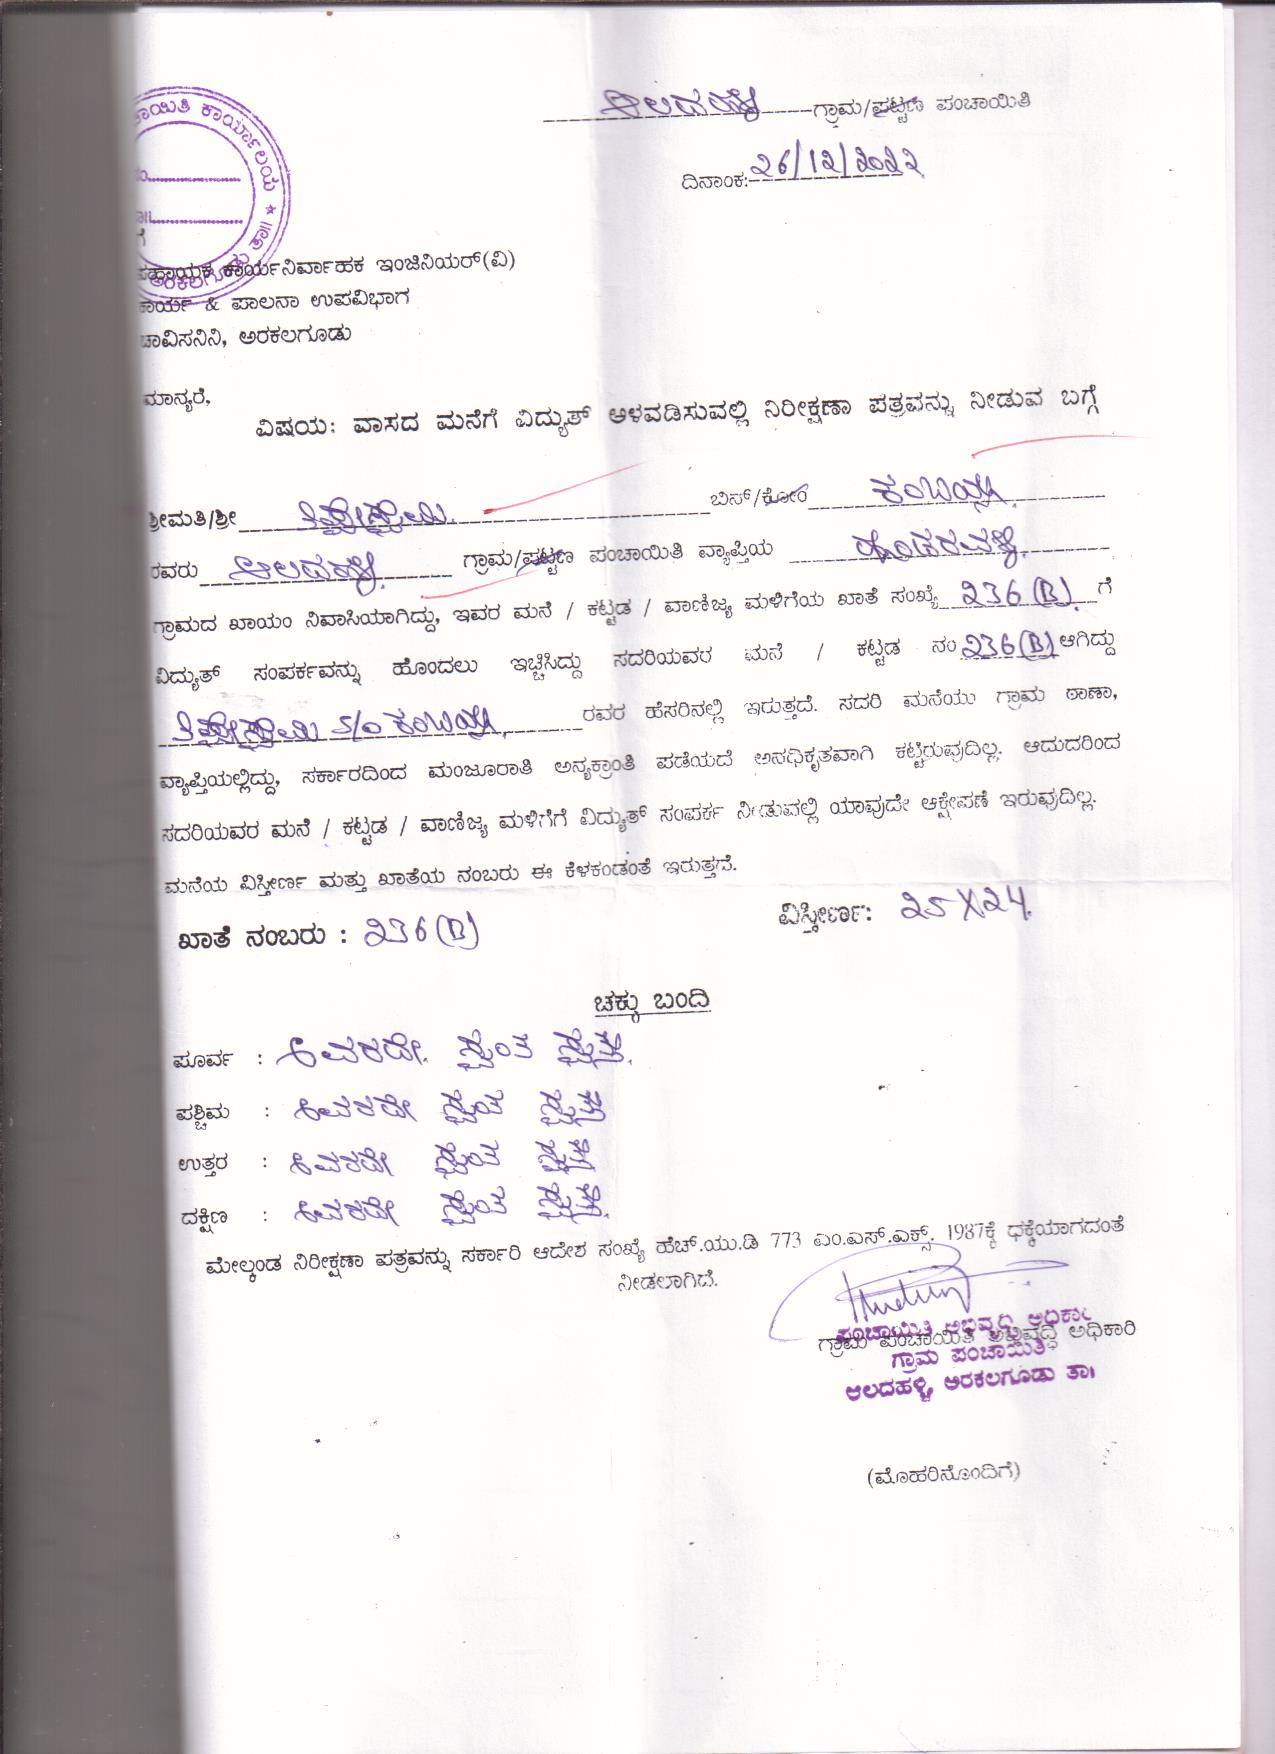 ಆಲದಹಳ್ಳಿ ಗ್ರಾಮ/ಪಟ್ಟಣ ಪಂಚಾಯಿತಿ
ದಿನಾಂಕ: ೨6/12/೨೦೨೨
ಚಾಯಿತಿ ಕಾರ್ಯಾಲಯ * ಅರಕಲಗೂಡು ತಾ॥
ಗೆ
ಸಹಾಯಕ ಕಾರ್ಯನಿರ್ವಾಹಕ ಇಂಜಿನಿಯರ್(ವಿ)
ಕಾರ್ಯ & ಪಾಲನಾ ಉಪವಿಭಾಗ
ಚಾವಿಸನಿನಿ, ಅರಕಲಗೂಡು
ಮಾನ್ಯರೆ,
ವಿಷಯ: ವಾಸದ ಮನೆಗೆ ವಿದ್ಯುತ್ ಅಳವಡಿಸುವಲ್ಲಿ ನಿರೀಕ್ಷಣಾ ಪತ್ರವನ್ನು ನೀಡುವ ಬಗ್ಗೆ
ಶ್ರೀಮತಿ/ಶ್ರೀ ತಿಪ್ಪೇಸ್ವಾಮಿ ಬಿನ್/ಕೋಂ ಕಂಬಯ್ಯ
ರವರು ಆಲದಹಳ್ಳಿ ಗ್ರಾಮ/ಪಟ್ಟಣ ಪಂಚಾಯಿತಿ ವ್ಯಾಪ್ತಿಯ ಹೊಡರವಳ್ಳಿ
ಗ್ರಾಮದ ಖಾಯಂ ನಿವಾಸಿಯಾಗಿದ್ದು, ಇವರ ಮನೆ / ಕಟ್ಟಡ / ವಾಣಿಜ್ಯ ಮಳಿಗೆಯ ಖಾತೆ ಸಂಖ್ಯೆ ೨36 (B) ಗೆ
ವಿದ್ಯುತ್ ಸಂಪರ್ಕವನ್ನು ಹೊಂದಲು ಇಚ್ಚಿಸಿದ್ದು ಸದರಿಯವರ ಮನೆ / ಕಟ್ಟಡ ನಂ ೨36(B) ಆಗಿದ್ದು
ತಿಪ್ಪೇಸ್ವಾಮಿ S/o ಕಂಬಯ್ಯ ರವರ ಹೆಸರಿನಲ್ಲಿ ಇರುತ್ತದೆ. ಸದರಿ ಮನೆಯು ಗ್ರಾಮ ಠಾಣಾ,
ವ್ಯಾಪ್ತಿಯಲ್ಲಿದ್ದು, ಸರ್ಕಾರದಿಂದ ಮಂಜೂರಾತಿ ಅನ್ಯಕ್ರಾಂತಿ ಪಡೆಯದೆ ಅನಧಿಕೃತವಾಗಿ ಕಟ್ಟಿರುವುದಿಲ್ಲ. ಆದುದರಿಂದ
ಸದರಿಯವರ ಮನೆ / ಕಟ್ಟಡ / ವಾಣಿಜ್ಯ ಮಳಿಗೆಗೆ ವಿದ್ಯುತ್ ಸಂಪರ್ಕ ನೀಡುವಲ್ಲಿ ಯಾವುದೇ ಆಕ್ಷೇಪಣೆ ಇರುವುದಿಲ್ಲ.
ಮನೆಯ ವಿಸ್ತೀರ್ಣ ಮತ್ತು ಖಾತೆಯ ನಂಬರು ಈ ಕೆಳಕಂಡಂತೆ ಇರುತ್ತದೆ.
ಖಾತೆ ನಂಬರು : ೨36 (B) ವಿಸ್ತೀರ್ಣ: ೨5 X ೨4
ಚಕ್ಕು ಬಂದಿ
ಪೂರ್ವ : ಅವರದೇ ಸ್ವಂತ ಸ್ವತ್ತು
ಪಶ್ಚಿಮ : ಅವರದೇ ಸ್ವಂತ ಸ್ವತ್ತು
ಉತ್ತರ : ಅವರದೇ ಸ್ವಂತ ಸ್ವತ್ತು
ದಕ್ಷಿಣ : ಅವರದೇ ಸ್ವಂತ ಸ್ವತ್ತು
ಮೇಲ್ಕಂಡ ನಿರೀಕ್ಷಣಾ ಪತ್ರವನ್ನು ಸರ್ಕಾರಿ ಆದೇಶ ಸಂಖ್ಯೆ ಹೆಚ್.ಯು.ಡಿ 773 ಎಂ.ಎಸ್.ಎಕ್ಸ್. 1987ಕ್ಕೆ ಧಕ್ಕೆಯಾಗದಂತೆ
ನೀಡಲಾಗಿದೆ.
ಪಂಚಾಯಿತಿ ಅಭಿವೃದ್ಧಿ ಅಧಿಕಾರಿ
ಗ್ರಾಮ ಪಂಚಾಯಿತಿ ಅಭಿವೃದ್ಧಿ ಅಧಿಕಾರಿ
ಗ್ರಾಮ ಪಂಚಾಯಿತಿ
ಆಲದಹಳ್ಳಿ, ಅರಕಲಗೂಡು ತಾ।
(ಮೊಹರಿನೊಂದಿಗೆ)